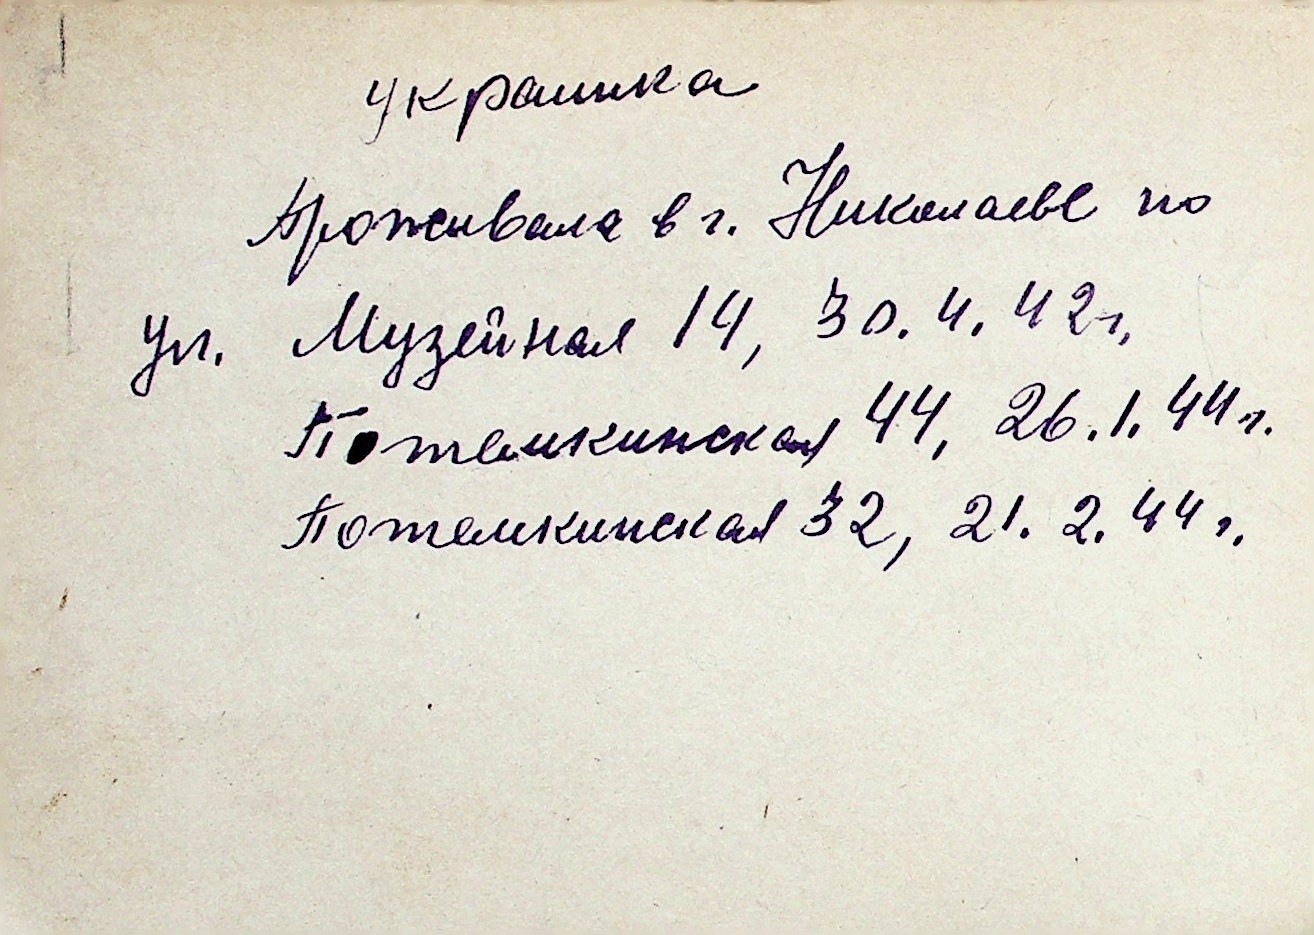 украинка
Проживала в г. Николаеве по
ул. Музейная 14, 30.4.42г.
Потемкинская 44, 26.1.44г.
Потемкинская 32, 21.2.44г.